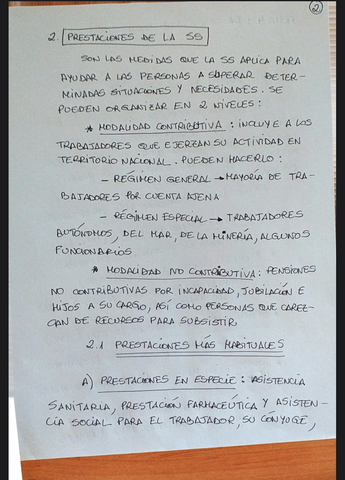 2
2. PRESTACIONES DE LA SS
SON LAS MEDIDAS QUE LA SS APLICA PARA
AYUDAR A LAS PERSONAS A SUPERAR DETER-
MINADAS SITUACIONES Y NECESIDADES. SE
PUEDEN ORGANIZAR EN 2 NIVELES:
* MODALIDAD CONTRIBUTIVA: INCLUYE A LOS
TRABAJADORES QUE EJERZAN SU ACTIVIDAD EN
TERRITORIO NACIONAL. PUEDEN HACERLO:
- RÉGIMEN GENERAL → MAYORÍA DE TRA-
BAJADORES POR CUENTA AJENA
- RÉGIMEN ESPECIAL → TRABAJADORES
AUTÓNOMOS, DEL MAR, DE LA MINERÍA, ALGUNOS
FUNCIONARIOS
* MODALIDAD NO CONTRIBUTIVA: PENSIONES
NO CONTRIBUTIVAS POR INCAPACIDAD, JUBILACIÓN E
HIJOS A SU CARGO, ASÍ COMO PERSONAS QUE CAREZ-
CAN DE RECURSOS PARA SUBSISTIR
2.1 PRESTACIONES MÁS HABITUALES
A) PRESTACIONES EN ESPECIE: ASISTENCIA
SANITARIA, PRESTACIÓN FARMACEÚTICA Y ASISTEN-
CIA SOCIAL PARA EL TRABAJADOR, SU CÓNYUGE,